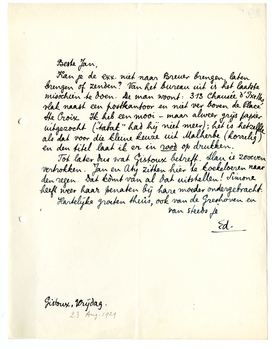 Beste Jan,
Kan je de exx. niet naar Breuer brengen, laten
brengen of zenden? Van het bureau uit is het laatste
misschien te doen. De man woont: 313 Chaussée d'Ixelles
vlak naast een postkantoor en niet ver boven de Place
Ste Croix. Ik heb een mooi – maar alweer grijs papier
uitgezocht ("tabak" had hij niet meer); het is hetzelfde
als dat voor die kleine keuze uit Malherbe
en den titel laat ik er in rood op drukken.
Tot later dus wat Gistoux betreft. Man is zooeven
vertrokken. Jan en Aty zitten hier te koekeloeren naar
den regen. Dat komt van al dat uitstellen! Simone
heeft weer haar penaten bij hare moeder ondergebracht.
Hartelijke groeten thuis, ook van de Greshoven en
van steeds je
Ed.
Gistoux, Vrijdag.
23 Aug. 1929